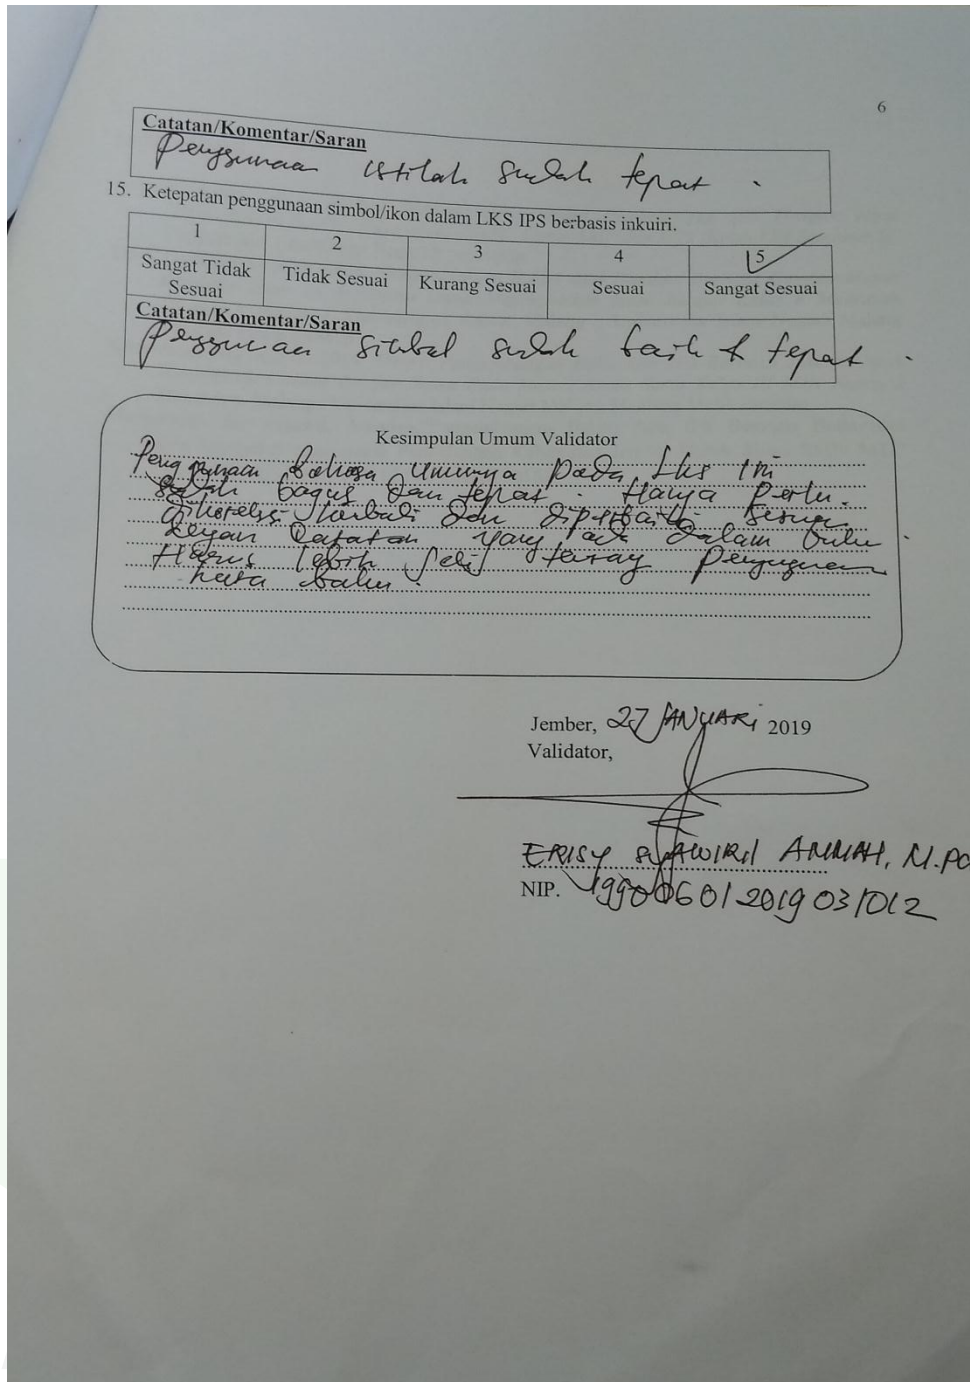 6
Catatan/Komentar/Saran
Penggunaan istilah sudah tepat.
15. Ketepatan penggunaan simbol/ikon dalam LKS IPS berbasis inkuiri.
1 2 3 4 5
Sangat Tidak Sesuai Tidak Sesuai Kurang Sesuai Sesuai Sangat Sesuai
Catatan/Komentar/Saran
Penggunaan simbol sudah baik & tepat.
Kesimpulan Umum Validator
Penggunaan bahasa umumnya pada LKS ini
sudah bagus dan tepat. Hanya perlu
dikoreksi kembali dan diperbaiki sesuai
dengan catatan yang ada dalam buku
Harus lebih teliti tentang penggunaan
kata baku.
Jember, 27 JANUARI 2019
Validator,
ERISY SYAWIRIL AMMAH, M.Pd
NIP. 199006012019031012